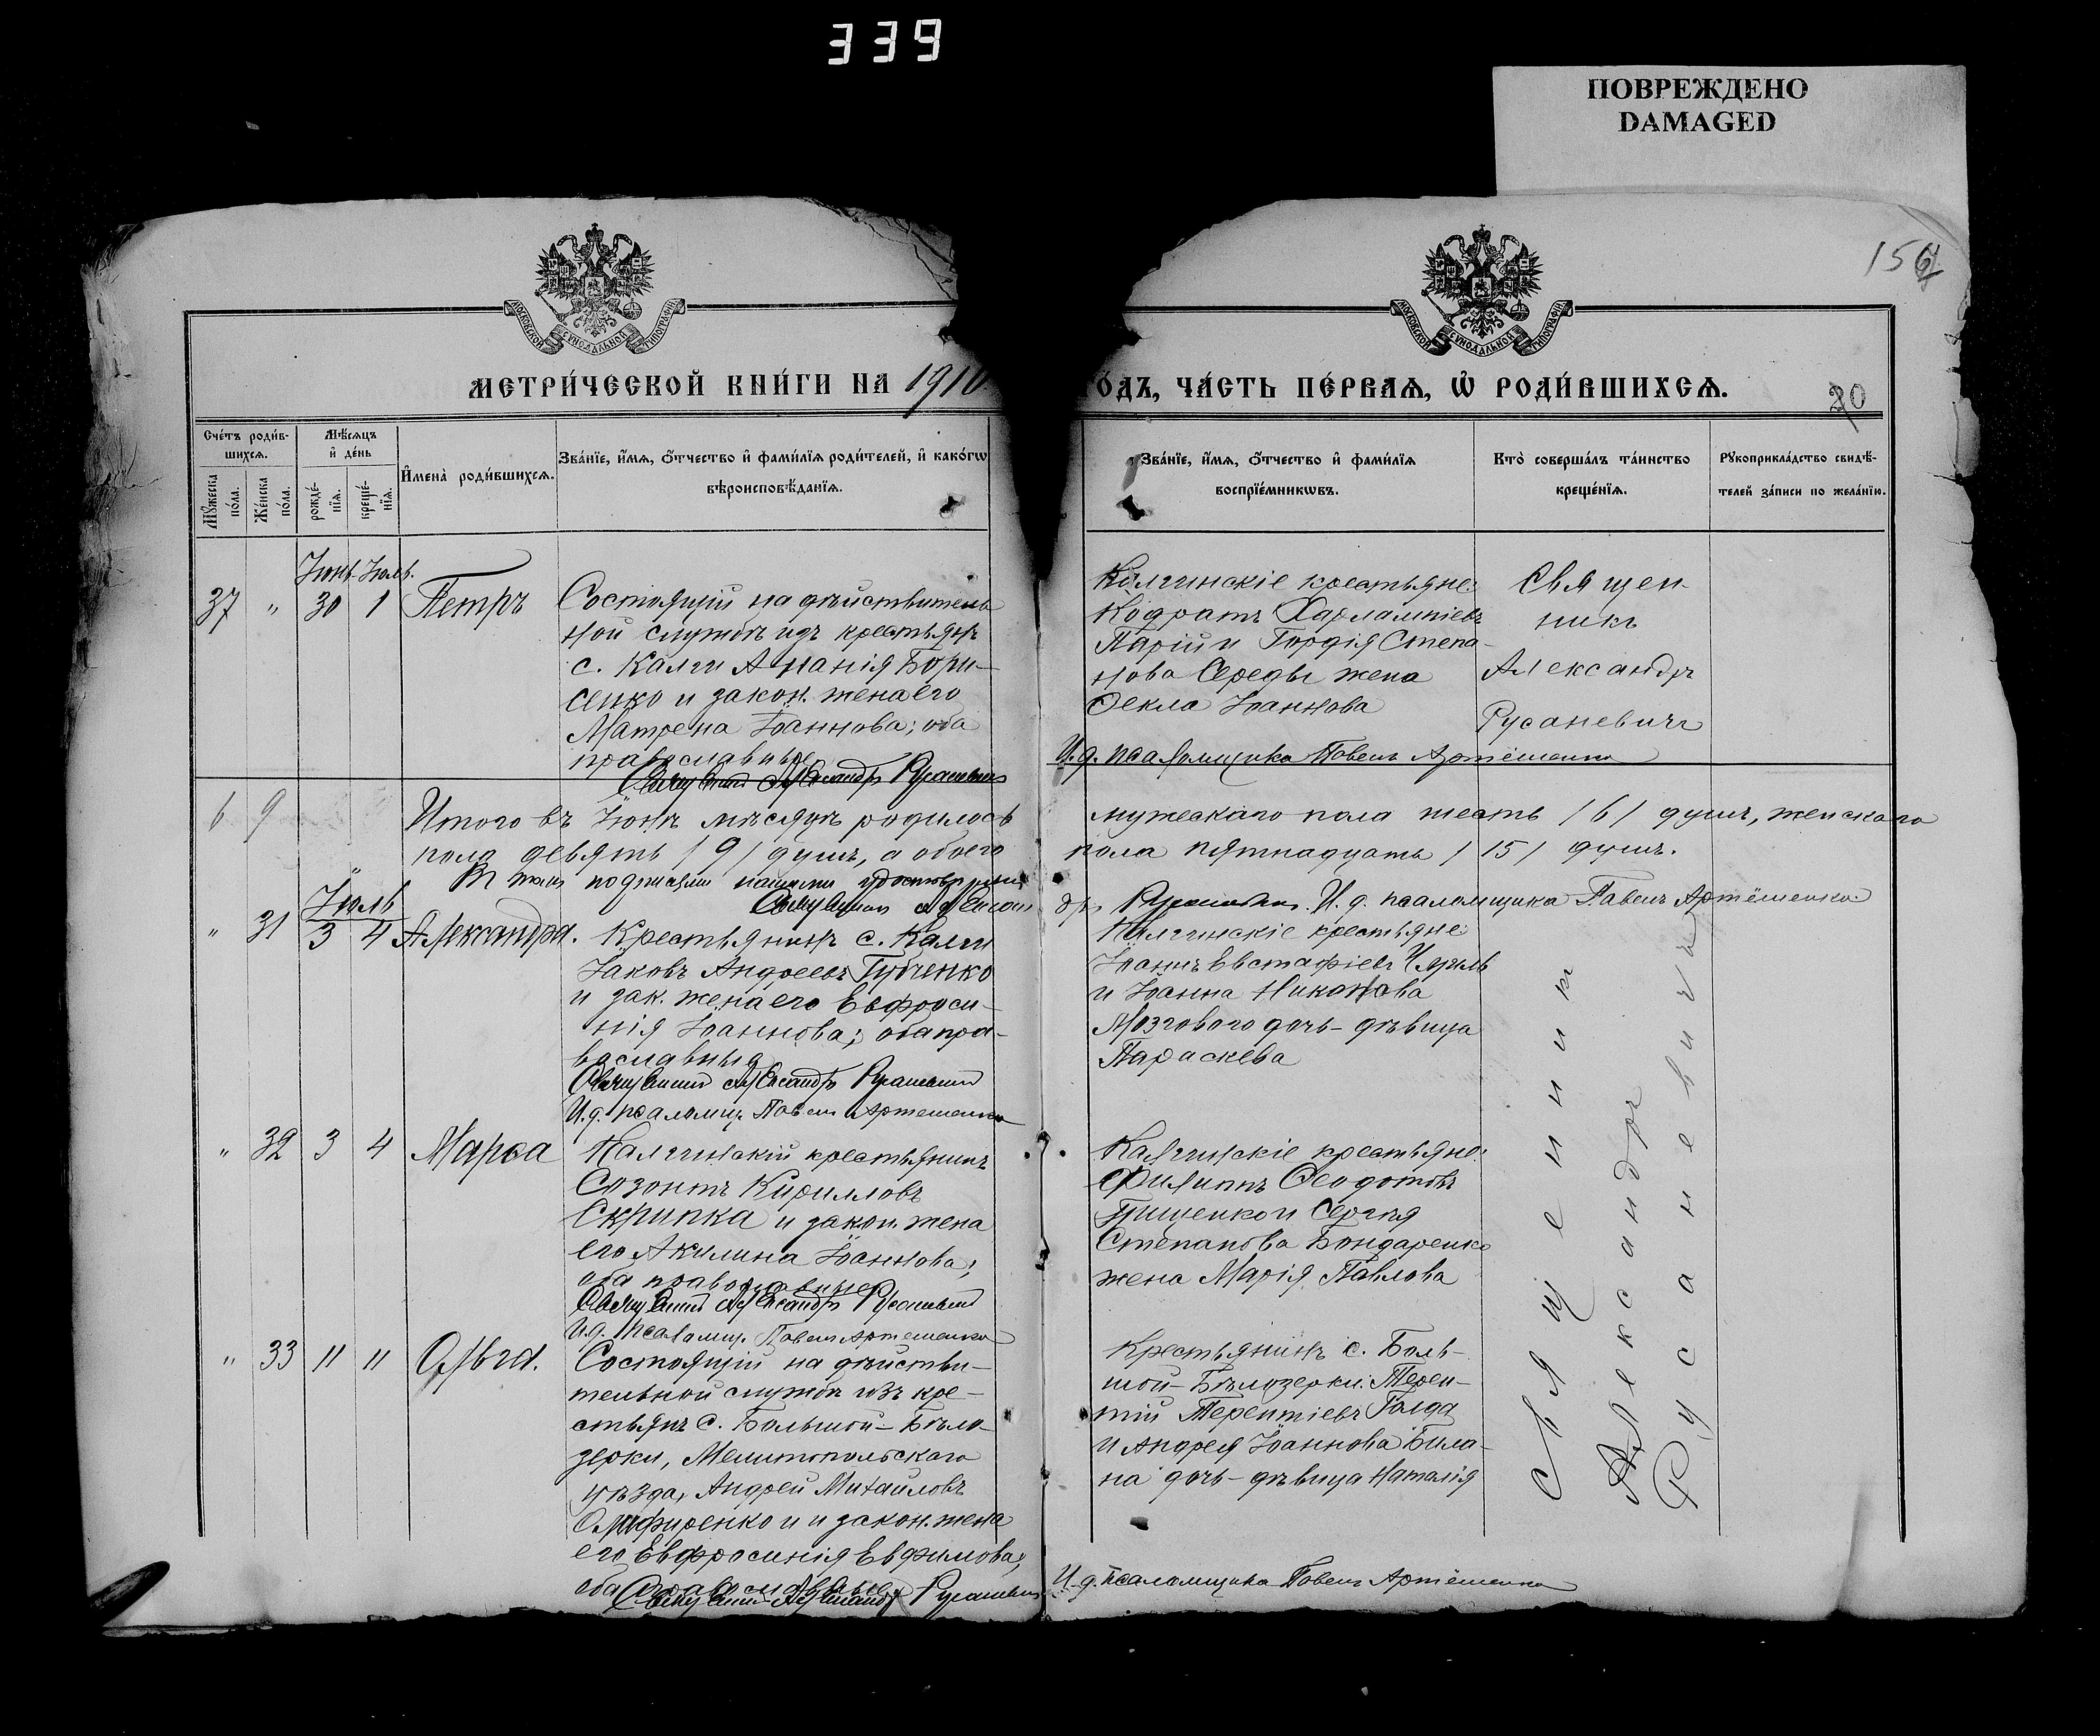 339
ПОВРЕЖДЕНО
DAMAGED
156
МОСКОВСКОЙ СѴНОДАЛЬНОЙ ТИПОГРАФІИ
МОСКОВСКОЙ СѴНОДАЛЬНОЙ ТИПОГРАФІИ
МЕТРИ́ЧЕСКОЙ КНИ́ГИ НА 1910
О́ДЪ, ЧА́СТЬ ПЕ́РВАѦ, Ѿ РОДИ́ВШИХСѦ.
20
Сче́тъ роди́в-
шихсѧ.
Мѣ́сѧцъ
и҆ де́нь
Мꙋ́жеска по́ла.
Же́нска по́ла.
рожде́-нїѧ.
креще́-нїѧ.
И҆мена̀ роди́вшихсѧ.
Зва́нїе, и҆́мѧ, ѻ҆́тчество и҆ фами́лїѧ роди́телей, и҆ како́гѡ
вѣроисповѣ́данїѧ.
Зва́нїе, и҆́мѧ, ѻ҆́тчество и҆ фами́лїѧ
воспрїе́мникѡвъ.
Кто̀ соверша́лъ та́инство
креще́нїѧ.
Рꙋкоприкла́дство свидѣ́-
телей за́писи по жела́нїю.
Іюнь Іюль.
37 " 30 1 Петръ
Состоящій на дѣйствитель
ной службѣ изъ крестьянъ
с. Калги Ананія Бори-
сенко и закон. жена его
Матрена Іоаннова; оба
православные
Священникъ Александръ Русаневичъ
Калгинскіе крестьяне:
Кодратъ Харлампіевъ
Парій и Гордія Степа-
нова Середы жена
Ѳекла Іоаннова
Священ-
никъ
Александръ
Русаневичъ
И. д. псаломщика Павелъ Артёменко
6 9
Итого въ Іюнѣ мѣсяцѣ родилось
мужескаго пола шесть /6/ душъ, женскаго
пола девять /9/ душъ, а обоего
пола пятнадцать /15/ душъ.
В подписями нашими
Священникъ Александръ Русаневичъ. И. д. псаломщика Павелъ Артёменко
Іюль
" 31 3 4 Александра.
Крестьянинъ с. Калги
Іаковъ Андреевъ Губченко
и зак. жена его Евфроси-
нія Іоаннова; оба пра-
вославные
Священникъ Александръ Русаневичъ
И. д. псаломщ. Павелъ Артеменко
Калгинскіе крестьяне:
Іоаннъ Евстафіевъ
и Іоанна Никонова
Мозгового дочь-дѣвица
Параскева
" 32 3 4 Марѳа
Калгинскій крестьянинъ
Созонтъ Кирилловъ
Скрипка и закон. жена
его Акилина Іоаннова;
оба православные
Священникъ Александръ Русаневичъ
И. д. псаломщ. Павелъ Артеменко
Калгинскіе крестьяне:
Филиппъ Ѳеодотовъ
Грищенко и Сергія
Степанова Бондаренко
жена Марія Павлова
" 33 11 11 Ольга.
Состоящій на дѣйстви-
тельной службѣ изъ кре-
стьянъ с. Большой-Бѣло-
зерки, Мелитопольскаго
уѣзда, Андрей Михайловъ
Олифиренко и закон. жена
его Евфросинія Евфимова;
оба православные
Священникъ Александръ Русаневичъ
Крестьянинъ с. Боль-
шой-Бѣлозерки: Терен-
тій Терентіевъ Голда
и Андрея Іоаннова Била-
на дочь-дѣвица Наталія
И. д. псаломщика Павелъ Артёменко
Священникъ
Александръ
Русаневичъ